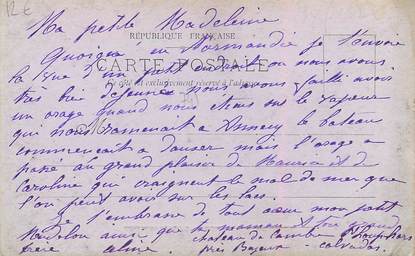 12 €
Ma petite Madeleine
RÉPUBLIQUE FRANÇAISE
Quoique en Normandie je t'envoie
CARTE POSTALE
la vue d'un petit endroit ou nous avons
Ce côté est exclusivement réservé à l'adresse
très bien déjeuné nous avons failli avoir
un orage quand nous étions sur le vapeur
qui nous ramenait a Annecy le bateau
commencait a danser mais l'orage a
passé au grand plaisir de Maurice et de
Caroline qui craignent le mal de mer que
l'on peut avoir sur les lacs.
Je t'embrasse de tout cœur mon petit
Madelon ainsi que ta maman et ton grand
frère Aline château de
près Bayeux - Calvados